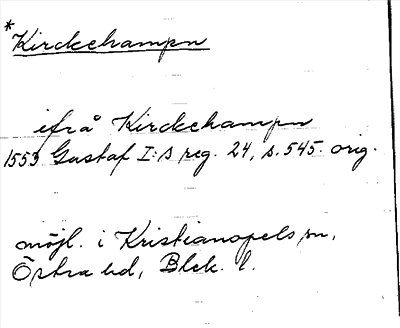 *
Kirckehampn
ifrå Kirckehampn
1553 Gustaf I:s reg. 24, s. 545 orig.
möjl. i Kristianopels sn,
Östra hd, Blek. l.